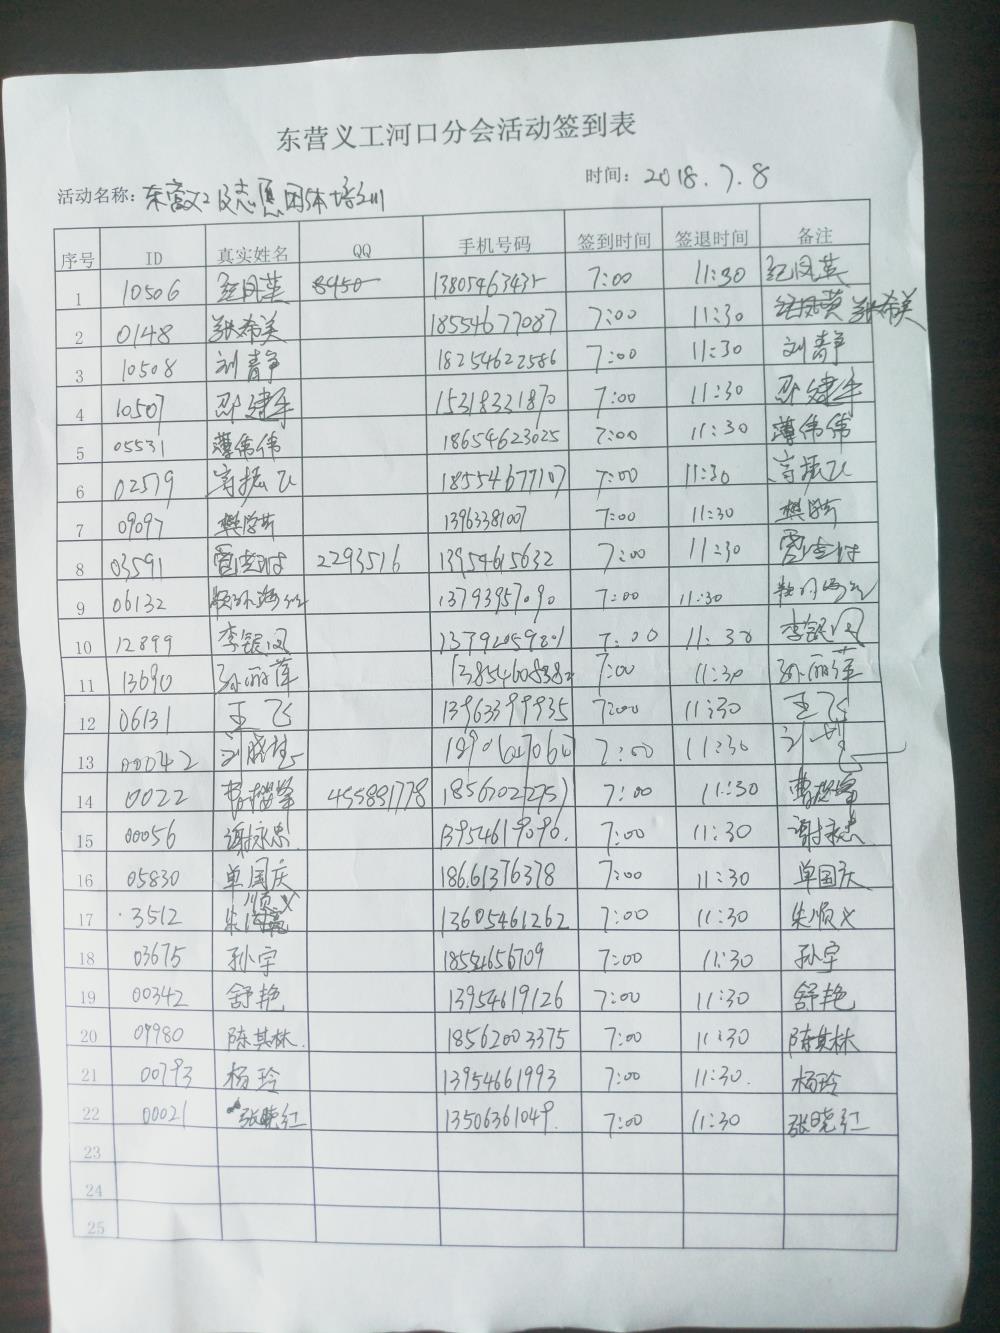 东营义工河口分会活动签到表
活动名称: 东营义工及志愿团体培训 时间: 2018.7.8
序号 ID 真实姓名 QQ 手机号码 签到时间 签退时间 备注
1 10506 纪凤英 13805463435 7:00 11:30 纪凤英
2 0148 张希美 18554677087 7:00 11:30 张希美
3 10508 刘青静 18254622586 7:00 11:30 刘青静
4 10507 15318321870 7:00 11:30
5 05531 薄伟伟 18654623025 7:00 11:30 薄伟伟
6 02579 高振飞 18554677107 7:00 11:30 高振飞
7 09097 樊学新 13963381007 7:00 11:30
8 03591 2293516 13954615632 7:00 11:30
9 06132 13793957090 7:00 11:30
10 12899 李银凤 13792059801 7:00 11:30 李银凤
11 13690 孙丽萍 7:00 11:30 孙丽萍
12 06131 王飞 13963399935 7:00 11:30 王飞
13 00042 7:00 11:30
14 0022 455891778 7:00 11:30
15 00056 谢永忠 13954619096. 7:00 11:30 谢永忠
16 05830 单国庆 186.61376378 7:00 11:30 单国庆
17 3512 朱顺义 13605461262 7:00 11:30 朱顺义
18 03675 孙宇 18554656709 7:00 11:30 孙宇
19 00342 舒艳 13954619126 7:00 11:30 舒艳
20 09980 陈其林. 18562003375 7:00 11:30 陈其林
21 00793 杨玲 13954661993 7:00 11:30. 杨玲
22 00021 张晓红 13506361049. 7:00 11:30 张晓红
23
24
25